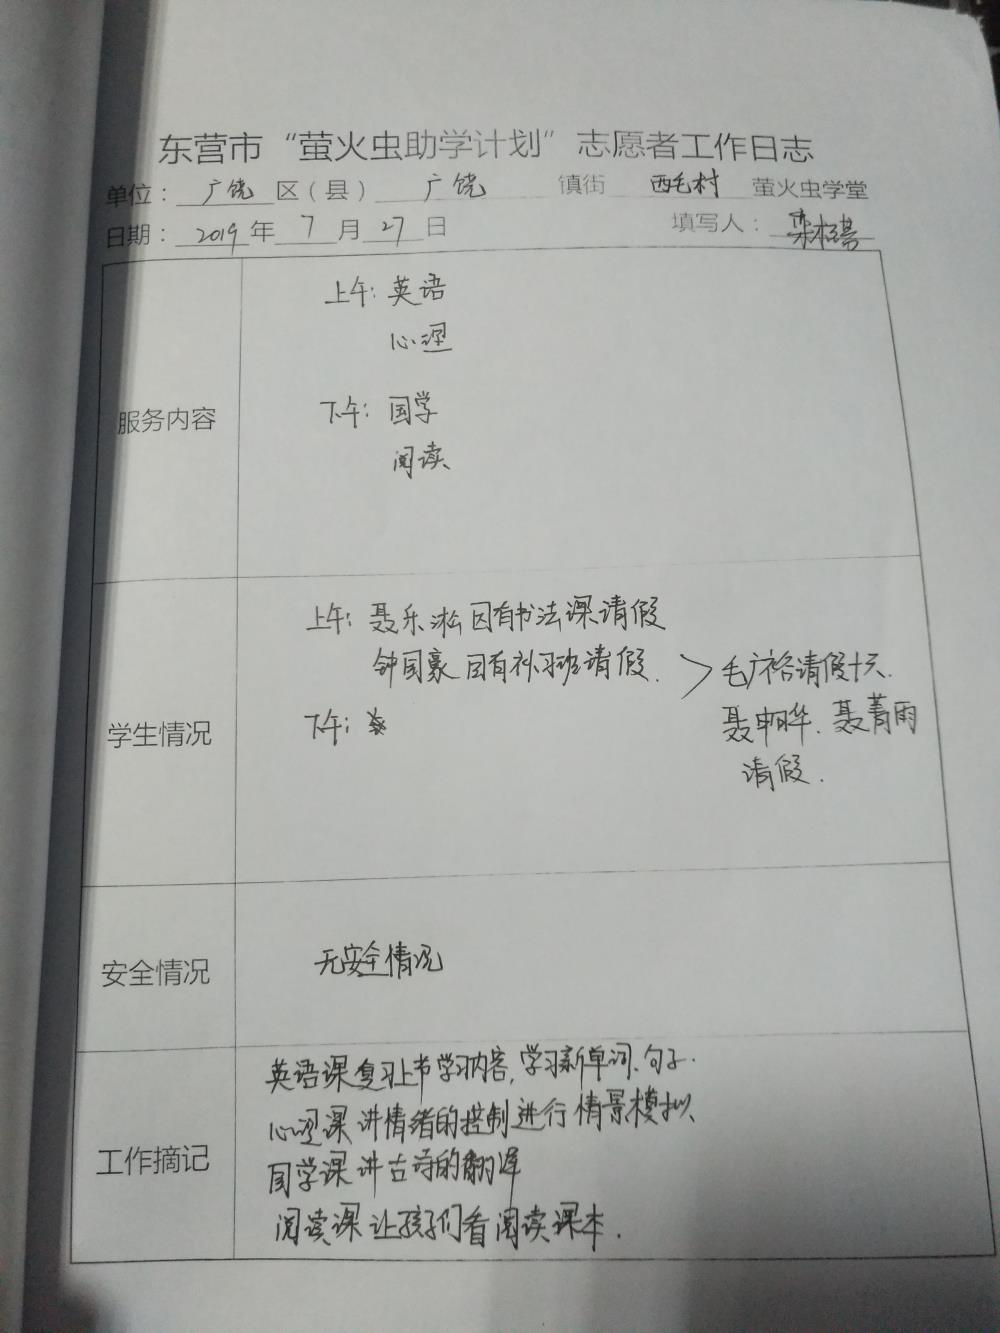 东营市“萤火虫助学计划”志愿者工作日志
单位：广饶区（县）广饶 镇街 西毛村 萤火虫学堂
日期：2019年7月27日 填写人：
服务内容
上午：英语
心理
下午：国学
阅读
学生情况
上午：聂乐淞因有书法课请假
钟国豪因有补习班请假.
毛广裕请假十天.
下午：
聂申晔、聂菁雨
请假.
安全情况
无安全情况
工作摘记
英语课复习上节学习内容，学习新单词、句子.
心理课讲情绪的控制进行情景模拟、
国学课讲古诗的翻译
阅读课让孩子们看阅读课本.